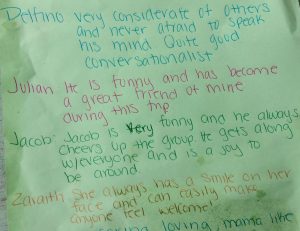 Delfino very considerate of others
and never afraid to speak
his mind. Quite good
conversationalist
Julian: He is funny and has become
a great friend of mine
during this trip
Jacob: Jacob is very funny and he always
cheers up the group. He gets along
w/everyone and is a joy to
be around.
Zaraith She always has a smile on her
face and can easily make
anyone feel welcome!
loving, mama like